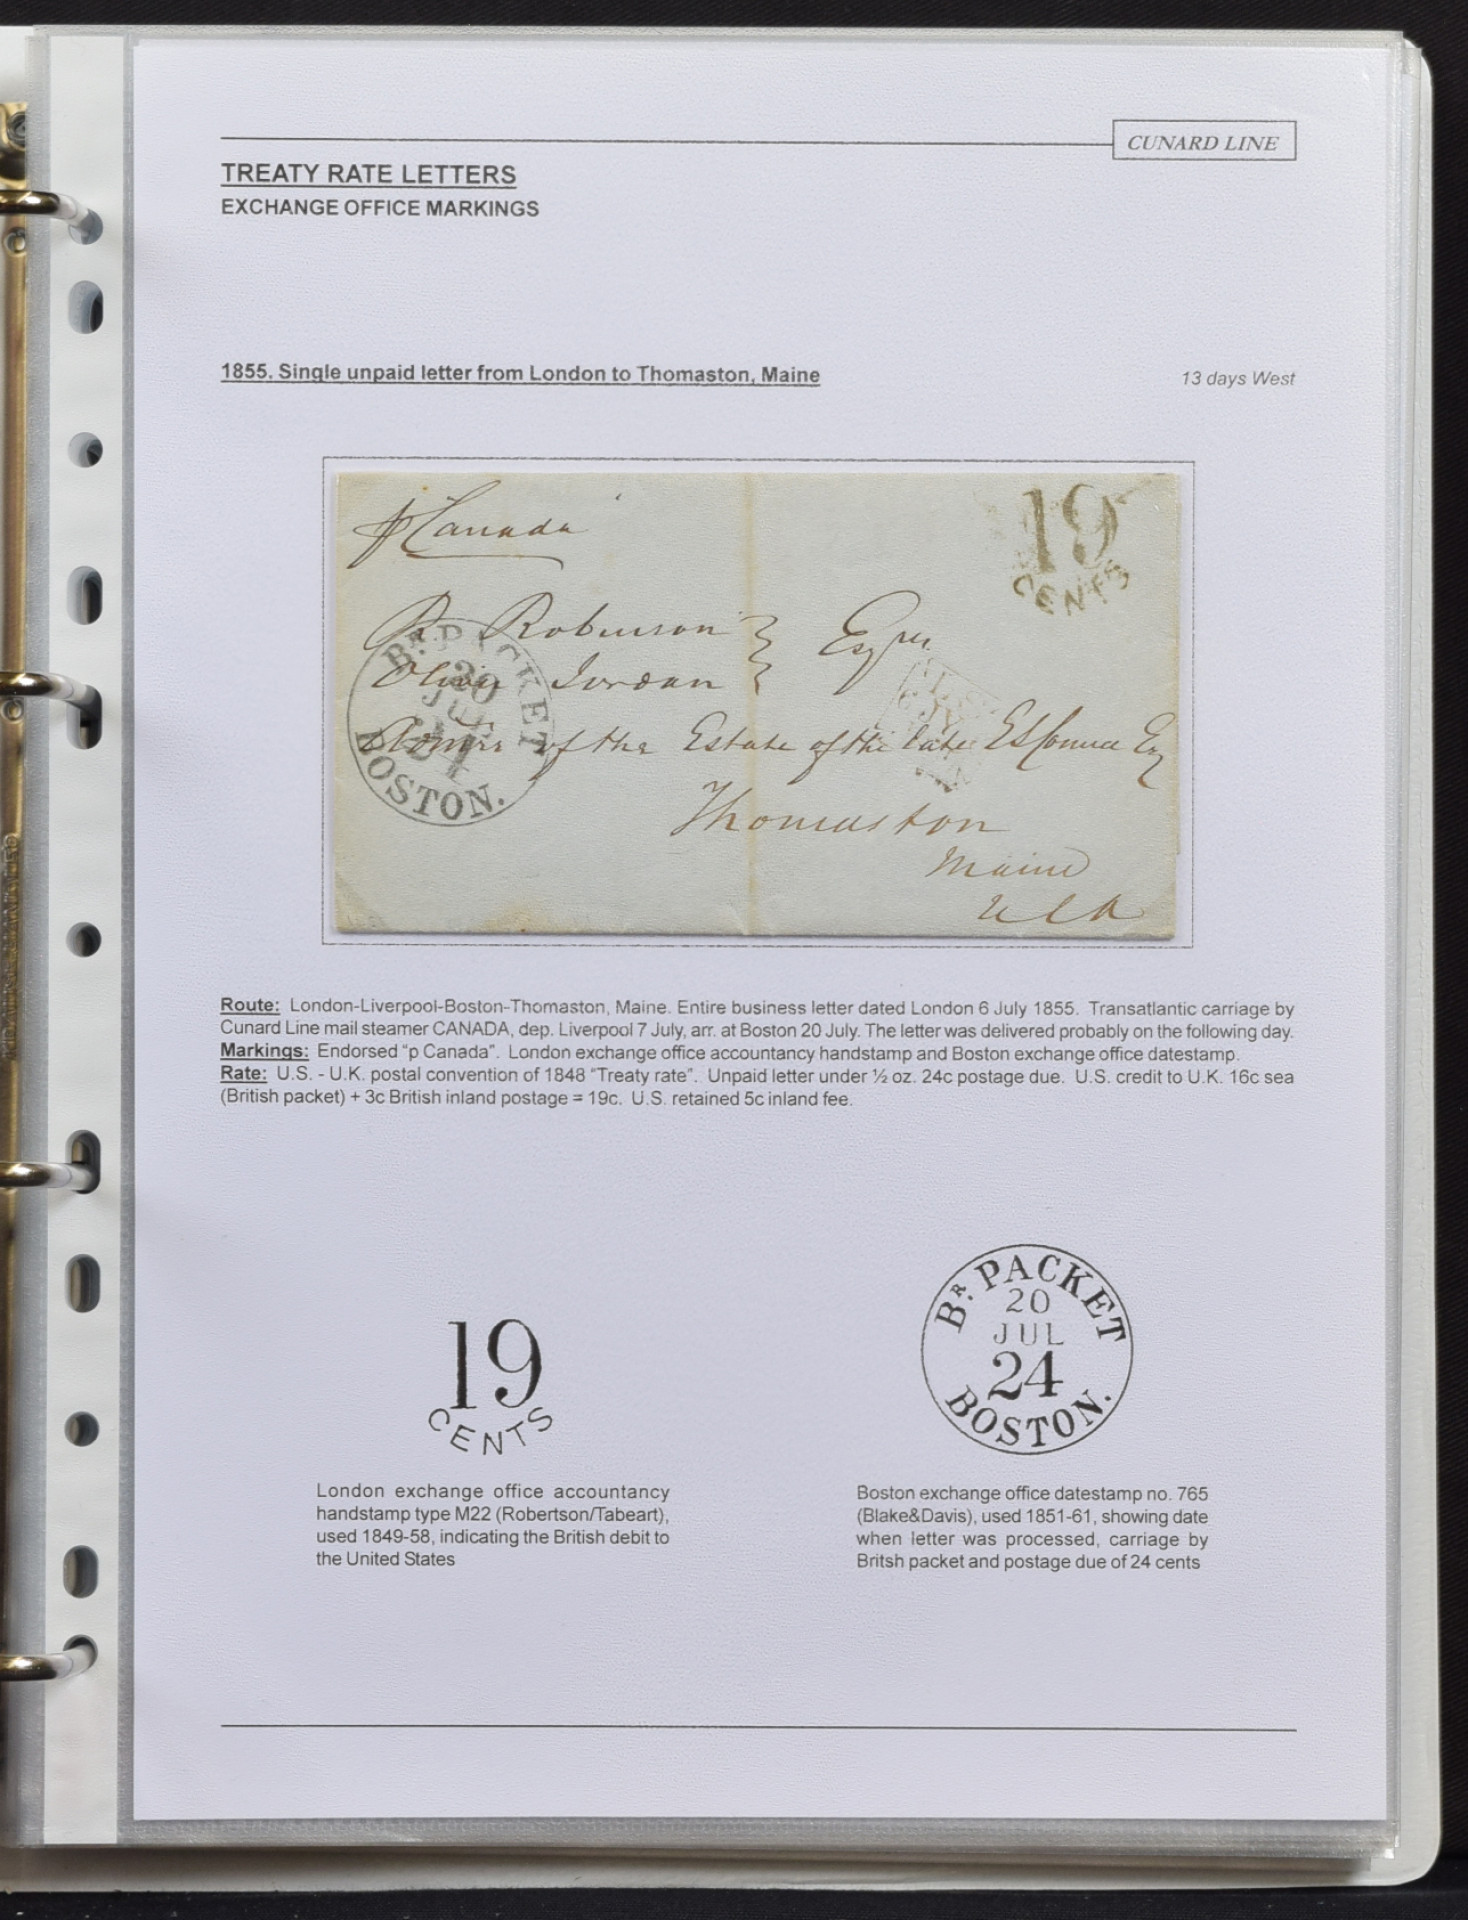 CUNARD LINE
TREATY RATE LETTERS
EXCHANGE OFFICE MARKINGS
1855. Single unpaid letter from London to Thomaston, Maine
13 days West
p Canada
19
CENTS
R Robinson
Oliver Jordan
Esqrs
of the Estate of the late
Thomaston
Maine
USA
BR. PACKET
20
JUL
24
BOSTON.
Route: London-Liverpool-Boston-Thomaston, Maine. Entire business letter dated London 6 July 1855. Transatlantic carriage by
Cunard Line mail steamer CANADA, dep. Liverpool 7 July, arr. at Boston 20 July. The letter was delivered probably on the following day.
Markings: Endorsed "p Canada". London exchange office accountancy handstamp and Boston exchange office datestamp.
Rate: U.S. - U.K. postal convention of 1848 "Treaty rate". Unpaid letter under ½ oz. 24c postage due. U.S. credit to U.K. 16c sea
(British packet) + 3c British inland postage = 19c. U.S. retained 5c inland fee.
19
CENTS
London exchange office accountancy
handstamp type M22 (Robertson/Tabeart),
used 1849-58, indicating the British debit to
the United States
BR. PACKET
20
JUL
24
BOSTON.
Boston exchange office datestamp no. 765
(Blake&Davis), used 1851-61, showing date
when letter was processed, carriage by
Britsh packet and postage due of 24 cents